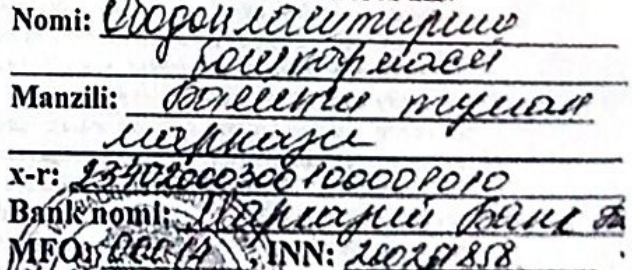 Nomi: Ободонлаштириш
бошкармаси
Manzili: Боевути туман
маркази
x-r: 23402000300100001010
Bank nomi: Марказий банк
MFO: 00014, INN: